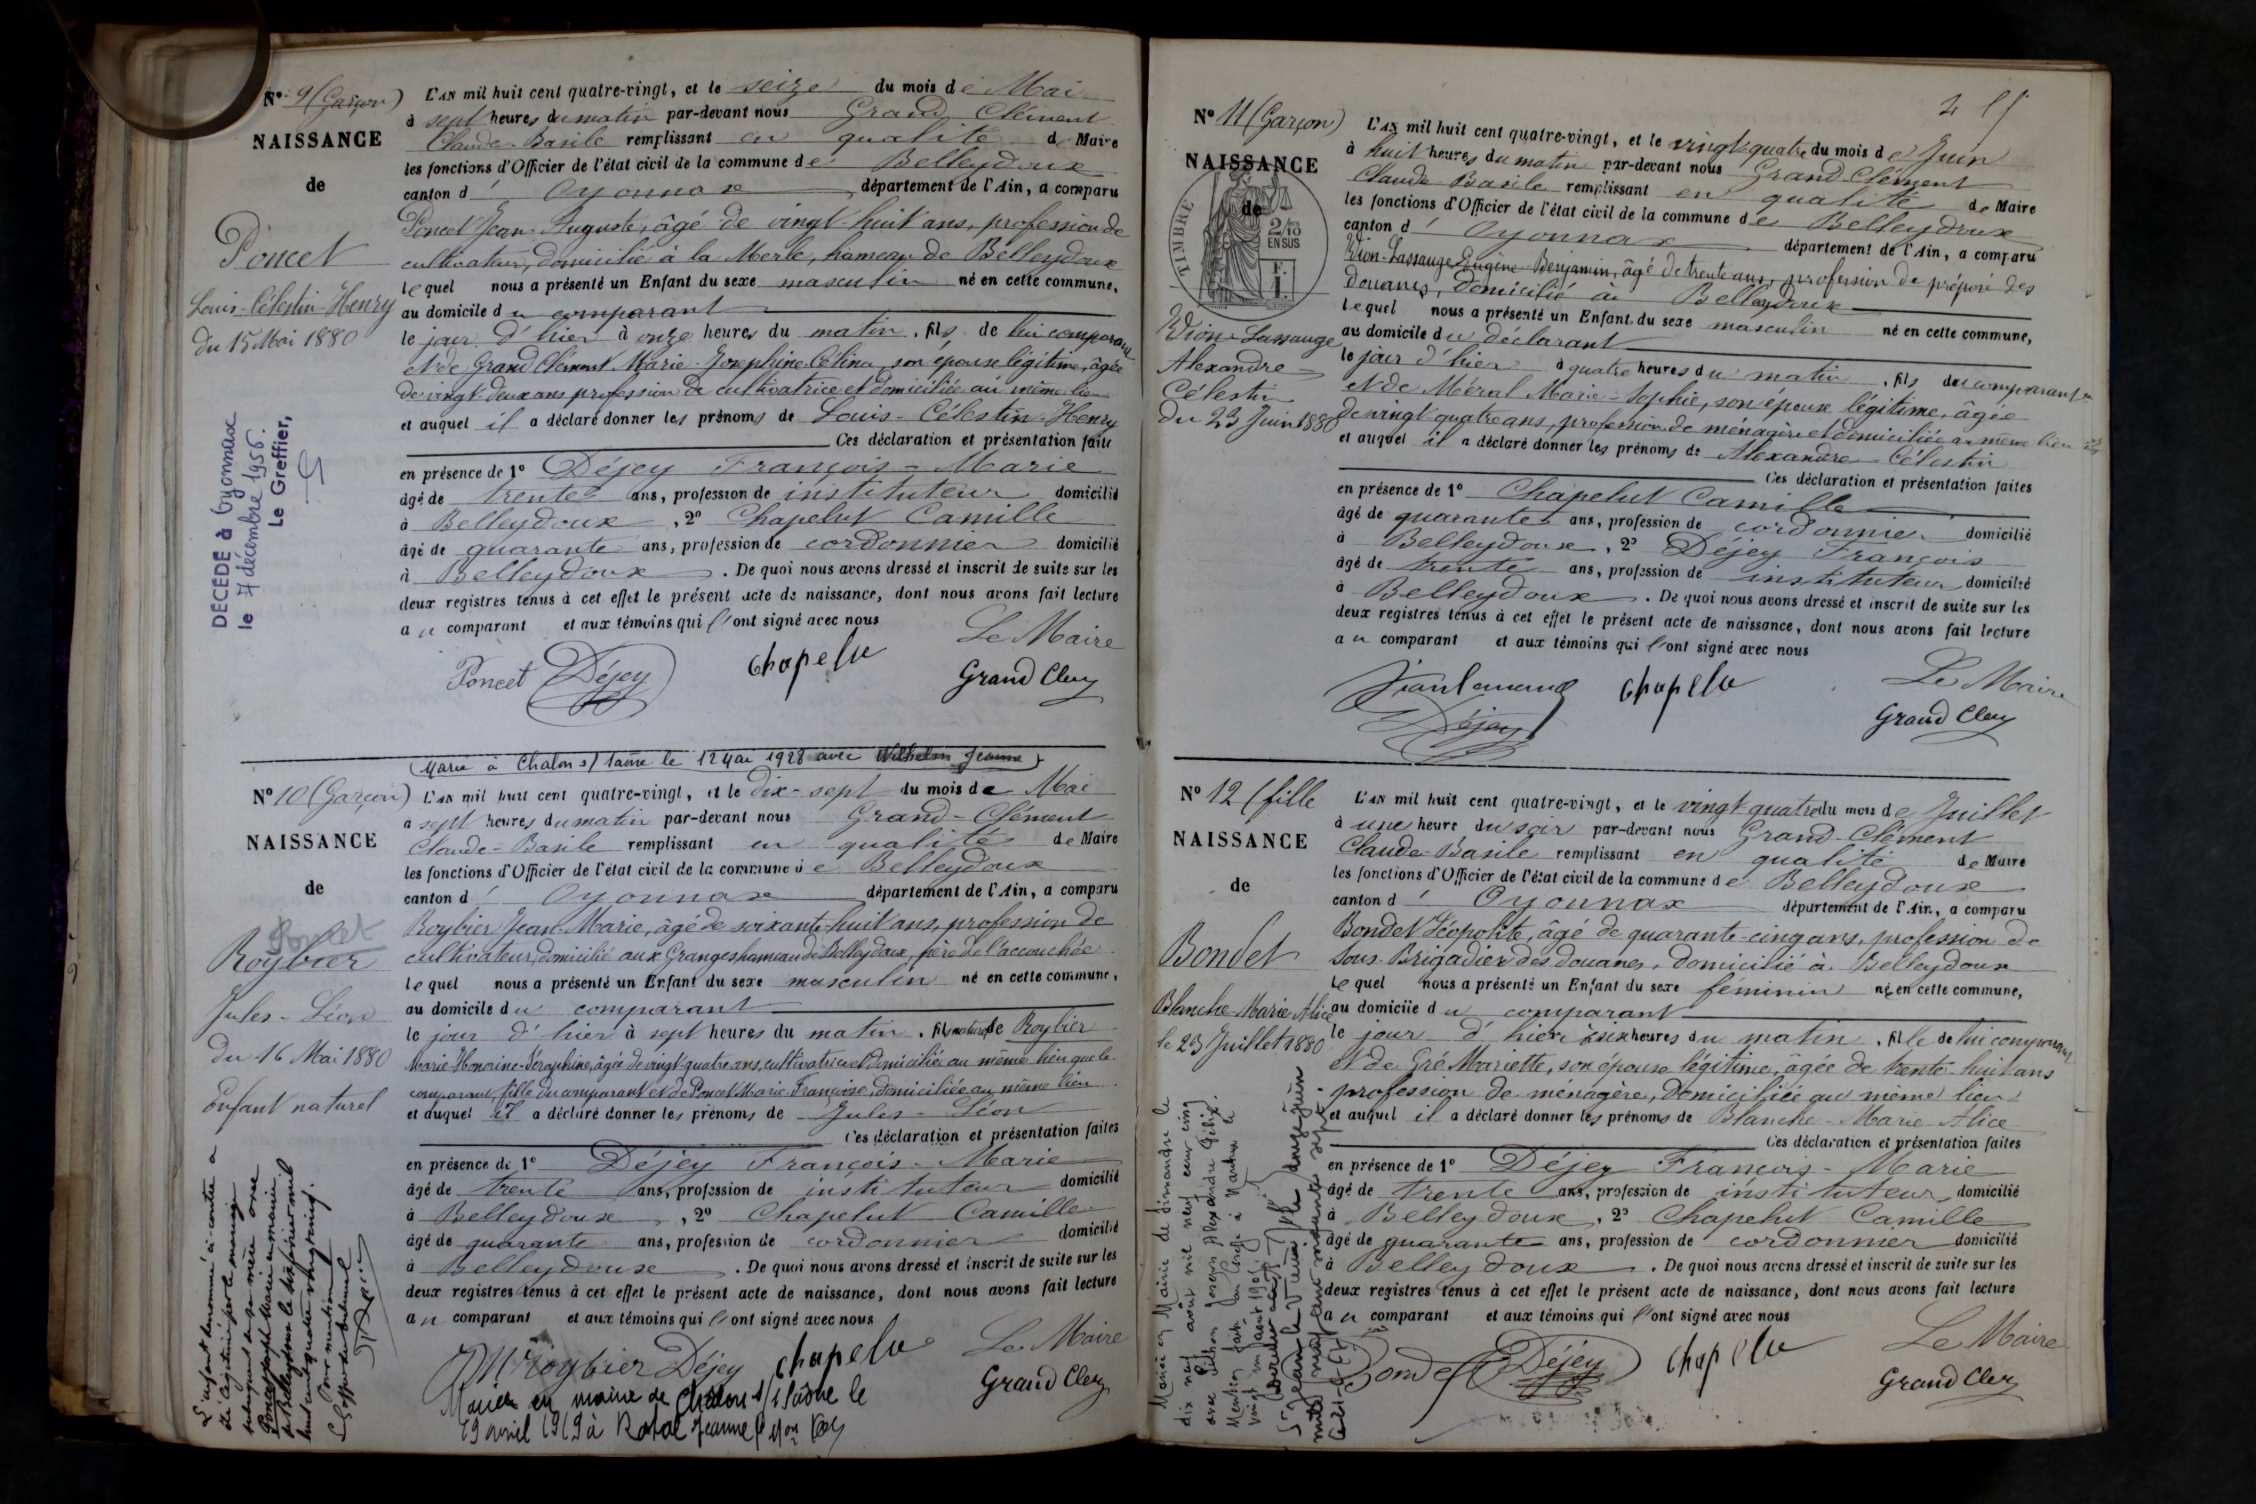 Nº 9 (Garçon)
NAISSANCE
de
Poncet
Louis-Célestin-Henry
du 15 Mai 1880
DÉCÉDÉ à Oyonnax
le 7 décembre 1956.
Le Greffier,
L'AN mil huit cent quatre-vingt, et le seize du mois de Mai
à sept heures du matin par-devant nous Grand Clément
Claude-Basile remplissant en qualité de Maire
les fonctions d'Officier de l'état civil de la commune de Belleydoux
canton d' Oyonnax département de l'Ain, a comparu
Poncet Jean-Auguste, âgé de vingt-huit ans, profession de
cultivateur, domicilié à la Merle, hameau de Belleydoux
lequel nous a présenté un Enfant du sexe masculin né en cette commune,
au domicile du comparant
le jour d'hier à onze heures du matin, fils de lui comparant
et de Grand Clément Marie-Josephine-Célina, son épouse légitime, âgée
de vingt-deux ans profession de cultivatrice et domiciliée au même lieu
et auquel il a déclaré donner les prénoms de Louis-Célestin-Henry
Ces déclaration et présentation faite
en présence de 1º Déjey François-Marie
âgé de trente ans, profession de instituteur domicilié
à Belleydoux, 2º Chapelut Camille
âgé de quarante ans, profession de cordonnier domicilié
à Belleydoux. De quoi nous avons dressé et inscrit de suite sur les
deux registres tenus à cet effet le présent acte de naissance, dont nous avons fait lecture
au comparant et aux témoins qui l'ont signé avec nous
Le Maire
Poncet Déjey Chapelu Grand Clem
Marié à Chalon s/ Saône le 12 Mai 1928 avec Wilhelm Jeanne
Nº 10 (Garçon)
NAISSANCE
de
Poncet
Roybier
Jules-Léon
du 16 Mai 1880
Enfant naturel
L'enfant dénommé ci-contre a
été légitimé par le mariage
subséquent de sa mère avec
Poncet Joseph Marie en mairie
de Belleydoux le six février mil
huit cent quatre vingt cinq.
Pour mention
L'AN mil huit cent quatre-vingt, et le dix-sept du mois de Mai
à sept heures du matin par-devant nous Grand-Clément
Claude-Basile remplissant en qualité de Maire
les fonctions d'Officier de l'état civil de la commune de Belleydoux
canton d' Oyonnax département de l'Ain, a comparu
Roybier Jean-Marie, âgé de soixante-huit ans, profession de
cultivateur, domicilié aux Granges hameau de Belleydoux, père de l'accouchée
lequel nous a présenté un Enfant du sexe masculin né en cette commune,
au domicile du comparant
le jour d'hier à sept heures du matin, fils naturel de Roybier
Marie-Honorine-Séraphine, âgée de vingt-quatre ans, cultivatrice et domiciliée au même lieu que le
comparant, fille du comparant et de Poncet Marie Françoise, domiciliée au même lieu
et auquel il a déclaré donner les prénoms de Jules-Léon
Ces déclaration et présentation faites
en présence de 1º Déjey François-Marie
âgé de trente ans, profession de instituteur domicilié
à Belleydoux, 2º Chapelut Camille
âgé de quarante ans, profession de cordonnier domicilié
à Belleydoux. De quoi nous avons dressé et inscrit de suite sur les
deux registres tenus à cet effet le présent acte de naissance, dont nous avons fait lecture
au comparant et aux témoins qui l'ont signé avec nous
Le Maire
Roybier Déjey Chapelu Grand Clem
Marié en mairie de Chalon s/ Saône le
19 avril 1919 à Ratat Jeanne
Nº 11 (Garçon)
NAISSANCE
de
TIMBRE
2/10
EN SUS
F.
1.
Vion-Lassauge
Alexandre-
Célestin
du 23 Juin 1880
L'AN mil huit cent quatre-vingt, et le vingt-quatre du mois de Juin
à huit heures du matin par-devant nous Grand-Clément
Claude Basile remplissant en qualité de Maire
les fonctions d'Officier de l'état civil de la commune de Belleydoux
canton d' Oyonnax département de l'Ain, a comparu
Vion-Lassauge Eugène-Benjamin, âgé de trente ans, profession de préposé des
douanes, domicilié à Belleydoux
lequel nous a présenté un Enfant du sexe masculin né en cette commune,
au domicile du déclarant
le jour d'hier à quatre heures du matin, fils du comparant
et de Méral Marie-Sophie, son épouse légitime, âgée
de vingt-quatre ans, profession de ménagère et domiciliée au même lieu
et auquel il a déclaré donner les prénoms de Alexandre Célestin
Ces déclaration et présentation faites
en présence de 1º Chapelut Camille
âgé de quarante ans, profession de cordonnier domicilié
à Belleydoux, 2º Déjey François
âgé de trente ans, profession de instituteur domicilié
à Belleydoux. De quoi nous avons dressé et inscrit de suite sur les
deux registres tenus à cet effet le présent acte de naissance, dont nous avons fait lecture
au comparant et aux témoins qui l'ont signé avec nous
Le Maire
Chapelu
Déjey Grand Clem
Nº 12 (fille
NAISSANCE
de
Bondet
Blanche-Marie-Alice
le 23 Juillet 1880
L'AN mil huit cent quatre-vingt, et le vingt-quatre du mois de Juillet
à une heure du soir par-devant nous Grand-Clément
Claude-Basile remplissant en qualité de Maire
les fonctions d'Officier de l'état civil de la commune de Belleydoux
canton d' Oyonnax département de l'Ain, a comparu
Bondet Léopolite, âgé de quarante-cinq ans, profession de
Sous-Brigadier des douanes, domicilié à Belleydoux
lequel nous a présenté un Enfant du sexe féminin né en cette commune,
au domicile du comparant
le jour d'hier à six heures du matin, fille de lui comparant
et de Gré Mariette, son épouse légitime, âgée de trente-huit ans
profession de ménagère, domiciliée au même lieu
et auquel il a déclaré donner les prénoms de Blanche-Marie-Alice
Ces déclaration et présentation faites
en présence de 1º Déjey François-Marie
âgé de trente ans, profession de instituteur, domicilié
à Belleydoux, 2º Chapelut Camille
âgé de quarante ans, profession de cordonnier domicilié
à Belleydoux. De quoi nous avons dressé et inscrit de suite sur les
deux registres tenus à cet effet le présent acte de naissance, dont nous avons fait lecture
au comparant et aux témoins qui l'ont signé avec nous
Le Maire
Bondet Déjey Chapelu Grand Clem